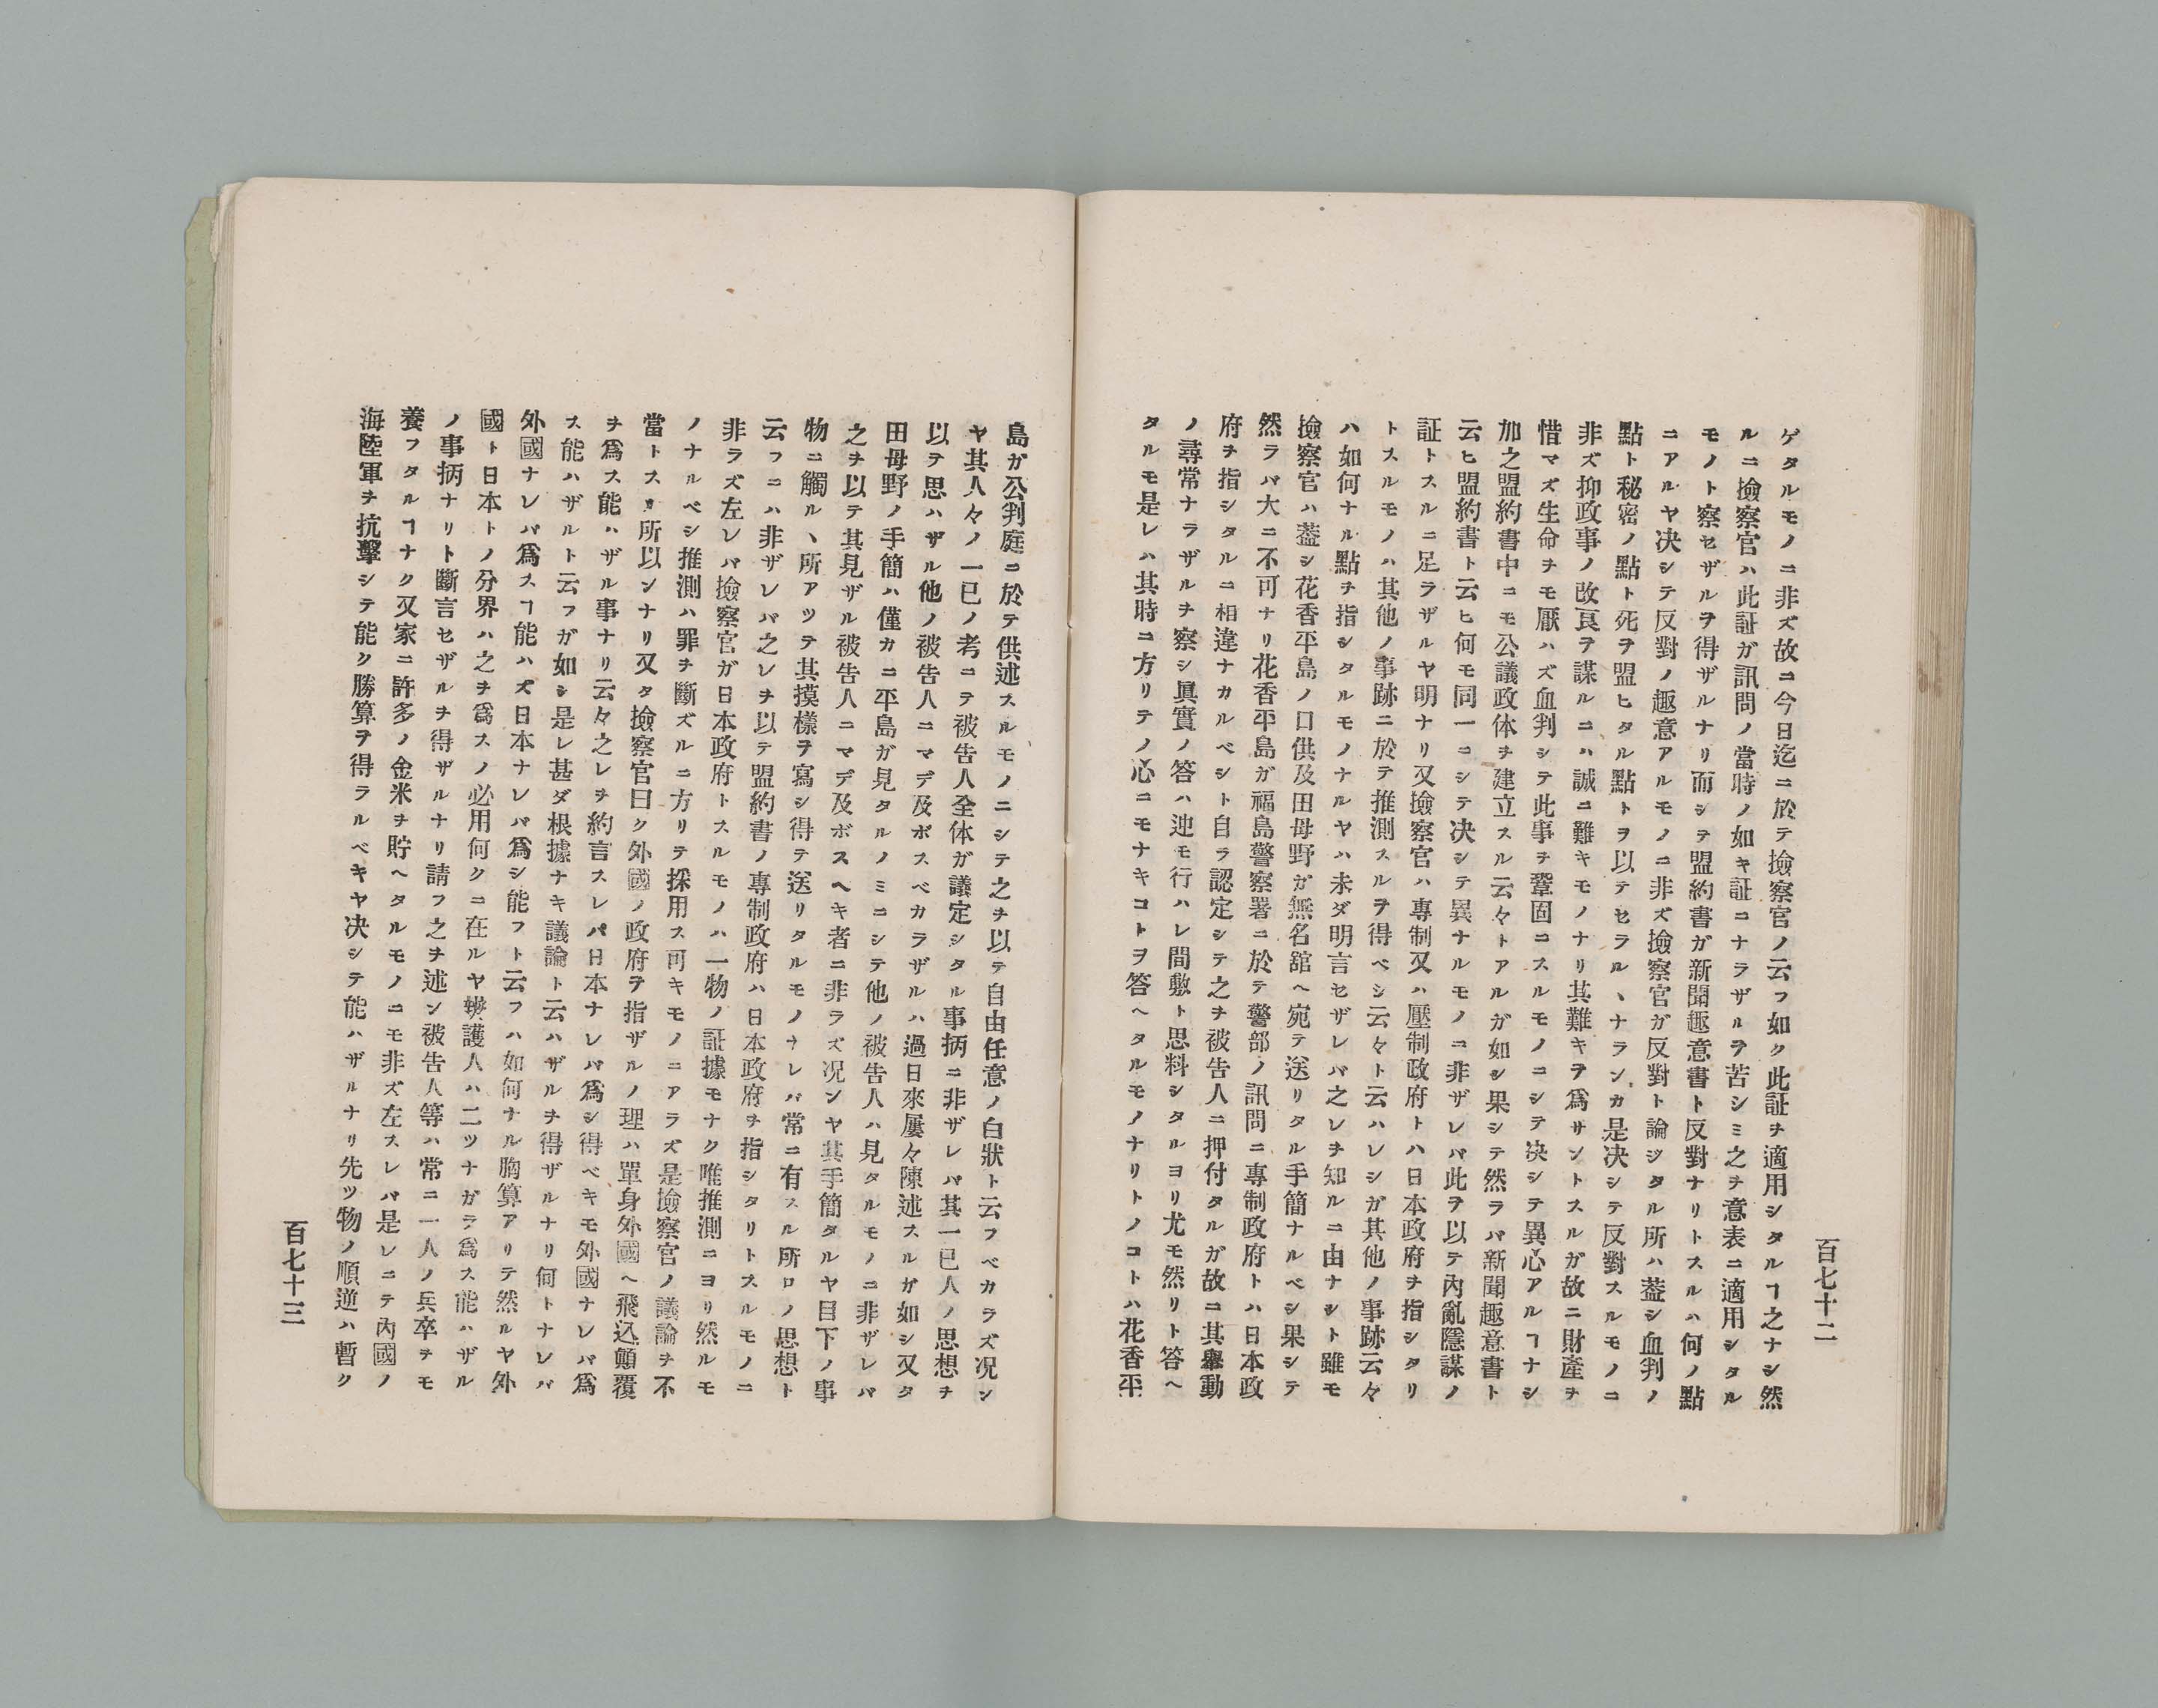 百七十二
ゲタルモノニ非ズ故ニ今日迄ニ於テ撿察官ノ云フ如ク此証ヲ適用シタルヿ之ナシ然
ルニ撿察官ハ此証ガ訊問ノ當時ノ如キ証ニナラザルヲ苦シミ之ヲ意表ニ適用シタル
モノト察セザルヲ得ザルナリ而シヲ盟約書ガ新聞趣意書ト反對ナリトスルハ何ノ點
ニアルヤ决シテ反對ノ趣意アルモノニ非ズ撿察官ガ反對ト論ジタル所ハ葢シ血判ノ
點ト秘密ノ點ト死ヲ盟ヒタル點トヲ以テセラルヽナランカ是决シテ反對スルモノニ
非ズ抑政事ノ改良ヲ謀ルニハ誠ニ難キモノナリ其難キヲ爲サントスルガ故ニ財產ヲ
惜マズ生命ヲモ厭ハズ血判シテ此事ヲ鞏固ニスルモノニシテ决シテ異心アルヿナシ
加之盟約書中ニモ公議政体ヲ建立スル云々トアルガ如シ果シテ然ラバ新聞趣意書ト
云ヒ盟約書ト云ヒ何モ同一ニシテ决シテ異ナルモノニ非ザレバ此ヲ以テ內亂隱謀ノ
証トスルニ足ラザルヤ明ナリ又撿察官ハ專制又ハ壓制政府トハ日本政府ヲ指シタリ
トスルモノハ其他ノ事跡ニ於テ推測スルヲ得ベシ云々ト云ハレシガ其他ノ事跡云々
ハ如何ナル點ヲ指シタルモノナルヤハ未ダ明言セザレバ之レヲ知ルニ由ナシト雖モ
撿察官ハ葢シ花香平島ノ口供及田母野ガ無名舘ヘ宛テ送リタル手簡ナルベシ果シテ
然ラバ大ニ不可ナリ花香平島ガ福島警察署ニ於テ警部ノ訊問ニ專制政府トハ日本政
府ヲ指シタルニ相違ナカルベシト自ラ認定シテ之ヲ被告人ニ押付タルガ故ニ其擧動
ノ尋常ナラザルヲ察シ眞實ノ答ハ迚モ行ハレ間敷ト思料シタルヨリ尤モ然リト答ヘ
タルモ是レハ其時ニ方リテノ心ニモナキコトヲ答ヘタルモノナリトノコトハ花香平
島ガ公判庭ニ於テ供述スルモノニシテ之ヲ以テ自由任意ノ白狀ト云フベカラズ况ン
ヤ其人々ノ一已ノ考ニテ被告人全体ガ議定シタル事柄ニ非ザレバ其一已人ノ思想ヲ
以テ思ハザル他ノ被告人ニマデ及ボスベカラザルハ過日來屢々陳述スルガ如シ又タ
田母野ノ手簡ハ僅カニ平島ガ見タルノミニシテ他ノ被告人ハ見タルモノニ非ザレバ
之ヲ以テ其見ザル被告人ニマデ及ボスヘキ者ニ非ラズ况ンヤ其手簡タルヤ目下ノ事
物ニ觸ルヽ所アツテ其摸樣ヲ寫シ得テ送リタルモノナレバ常ニ有スル所ロノ思想ト
云フニハ非ザレバ之レヲ以テ盟約書ノ專制政府ハ日本政府ヲ指シタリトスルモノニ
非ラズ左レバ撿察官ガ日本政府トスルモノハ一物ノ証據モナク唯推測ニヨリ然ルモ
ノナルベシ推測ハ罪ヲ斷ズルニ方リテ採用ス可キモノニアラズ是撿察官ノ議論ヲ不
當トスル所以ンナリ又タ撿察官曰ク外國ノ政府ヲ指ザルノ理ハ單身外國ヘ飛込顚覆
ヲ爲ス能ハザル事ナリ云々之レヲ約言スレバ日本ナレバ爲シ得ベキモ外國ナレバ爲
ス能ハザルト云フガ如シ是レ甚ダ根據ナキ議論ト云ハザルヲ得ザルナリ何トナレバ
外國ナレバ爲スヿ能ハズ日本ナレバ爲シ能フト云フハ如何ナル胸算アリテ然ルヤ外
國ト日本トノ分界ハ之ヲ爲スノ必用何クニ在ルヤ辨護人ハ二ツナガラ爲ス能ハザル
ノ事柄ナリト斷言セザルヲ得ザルナリ請フ之ヲ述ン被告人等ハ常ニ一人ノ兵卒ヲモ
養フタルヿナク又家ニ許多ノ金米ヲ貯ヘタルモノニモ非ズ左スレバ是レニテ內國ノ
海陸軍ヲ抗擊シテ能ク勝算ヲ得ラルベキヤ决シテ能ハザルナリ先ツ物ノ順逆ハ暫ク
百七十三